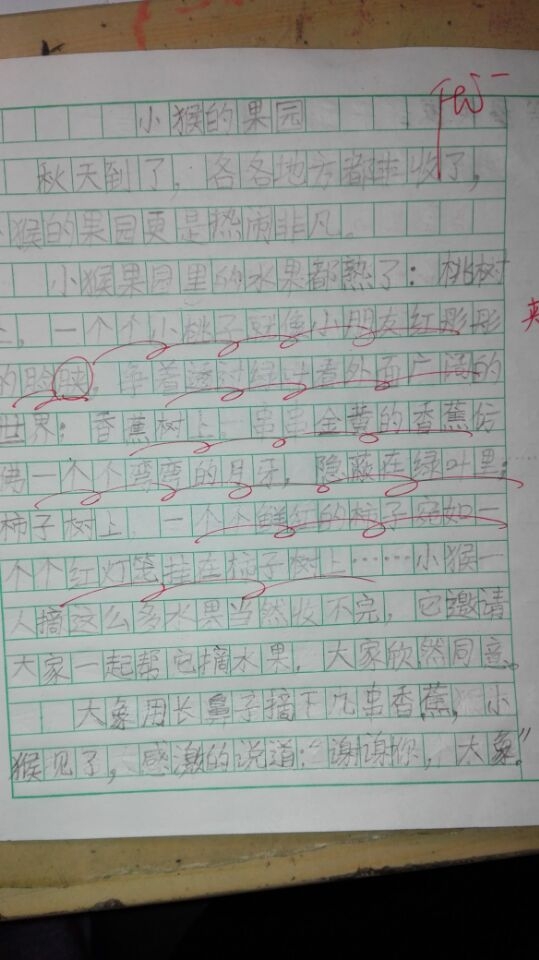 小猴的果园
秋天到了，各各地方都丰收了，
猴的果园更是热闹非凡。
小猴果园里的水果都熟了：桃树
上，一个个小桃子就像小朋友红彤彤
的脸颊，争着透过绿叶看外面广阔的
世界；香蕉树上一串串金黄的香蕉仿
佛一个个弯弯的月牙，隐蔽在绿叶里；
柿子树上，一个个鲜红的柿子宛如一
个个红灯笼挂在柿子树上……小猴一
人摘这么多水果当然收不完，它邀请
大家一起帮它摘水果，大家欣然同意。
大象用长鼻子摘下几串香蕉，小
猴见了，感激的说道：“谢谢你，大象。”